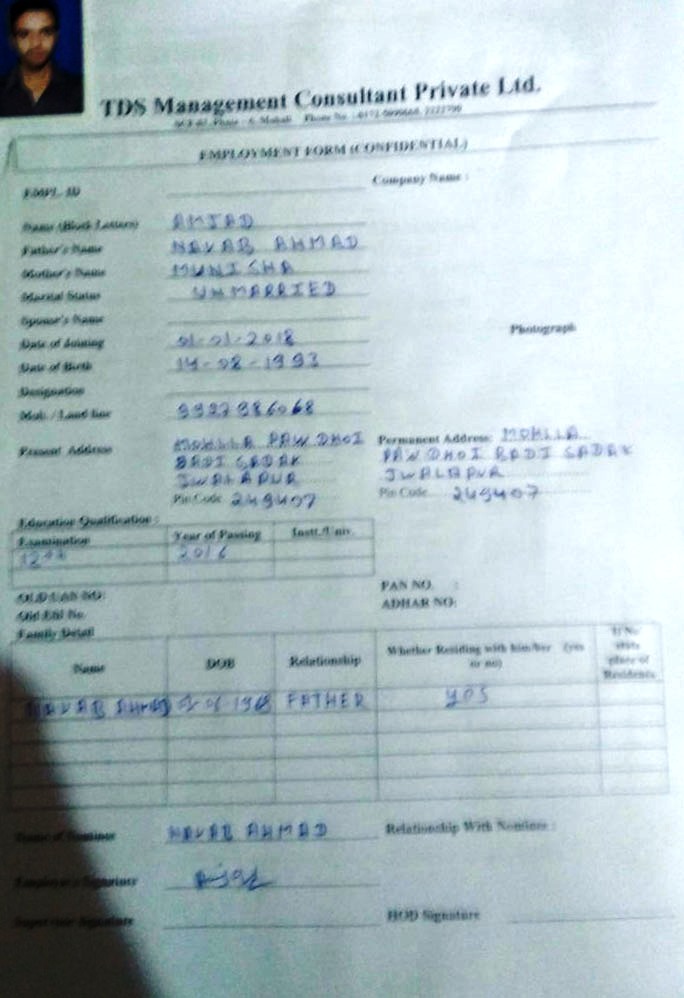 TDS Management Consultant Private Ltd.
EMPLOYMENT FORM (CONFIDENTIAL)
EMPL. ID
Company Name :
Name (Block Letters) AMJAD
Father's Name NAVAB AHMAD
Mother's Name MUNISHA
Marital Status UNMARRIED
Spouse's Name
Date of Joining 01-01-2018
Photograph
Date of Birth 14-08-1993
Designation
Mob. / Land line 9927986068
Present Address MOHLLA PAW DHOI Permanent Address: MOHLLA
BADI SADAK PAW DHOI BADI SADAK
JWALAPUR JWALAPUR
Pin Code 249407 Pin Code 249407
Education Qualification :
Examination Year of Passing Instt./Univ.
12th 2016
PAN NO. :
OLD UAN NO:
ADHAR NO:
Old ESI No.
Family Detail
Name DOB Relationship Whether Residing with him/her (yes or no) If No state place of Residents
NAVAB AHMAD FATHER yos
Name of Nominee NAVAB AHMAD Relationship With Nominee :
Employee's Signature
Supervisor Signature HOD Signature